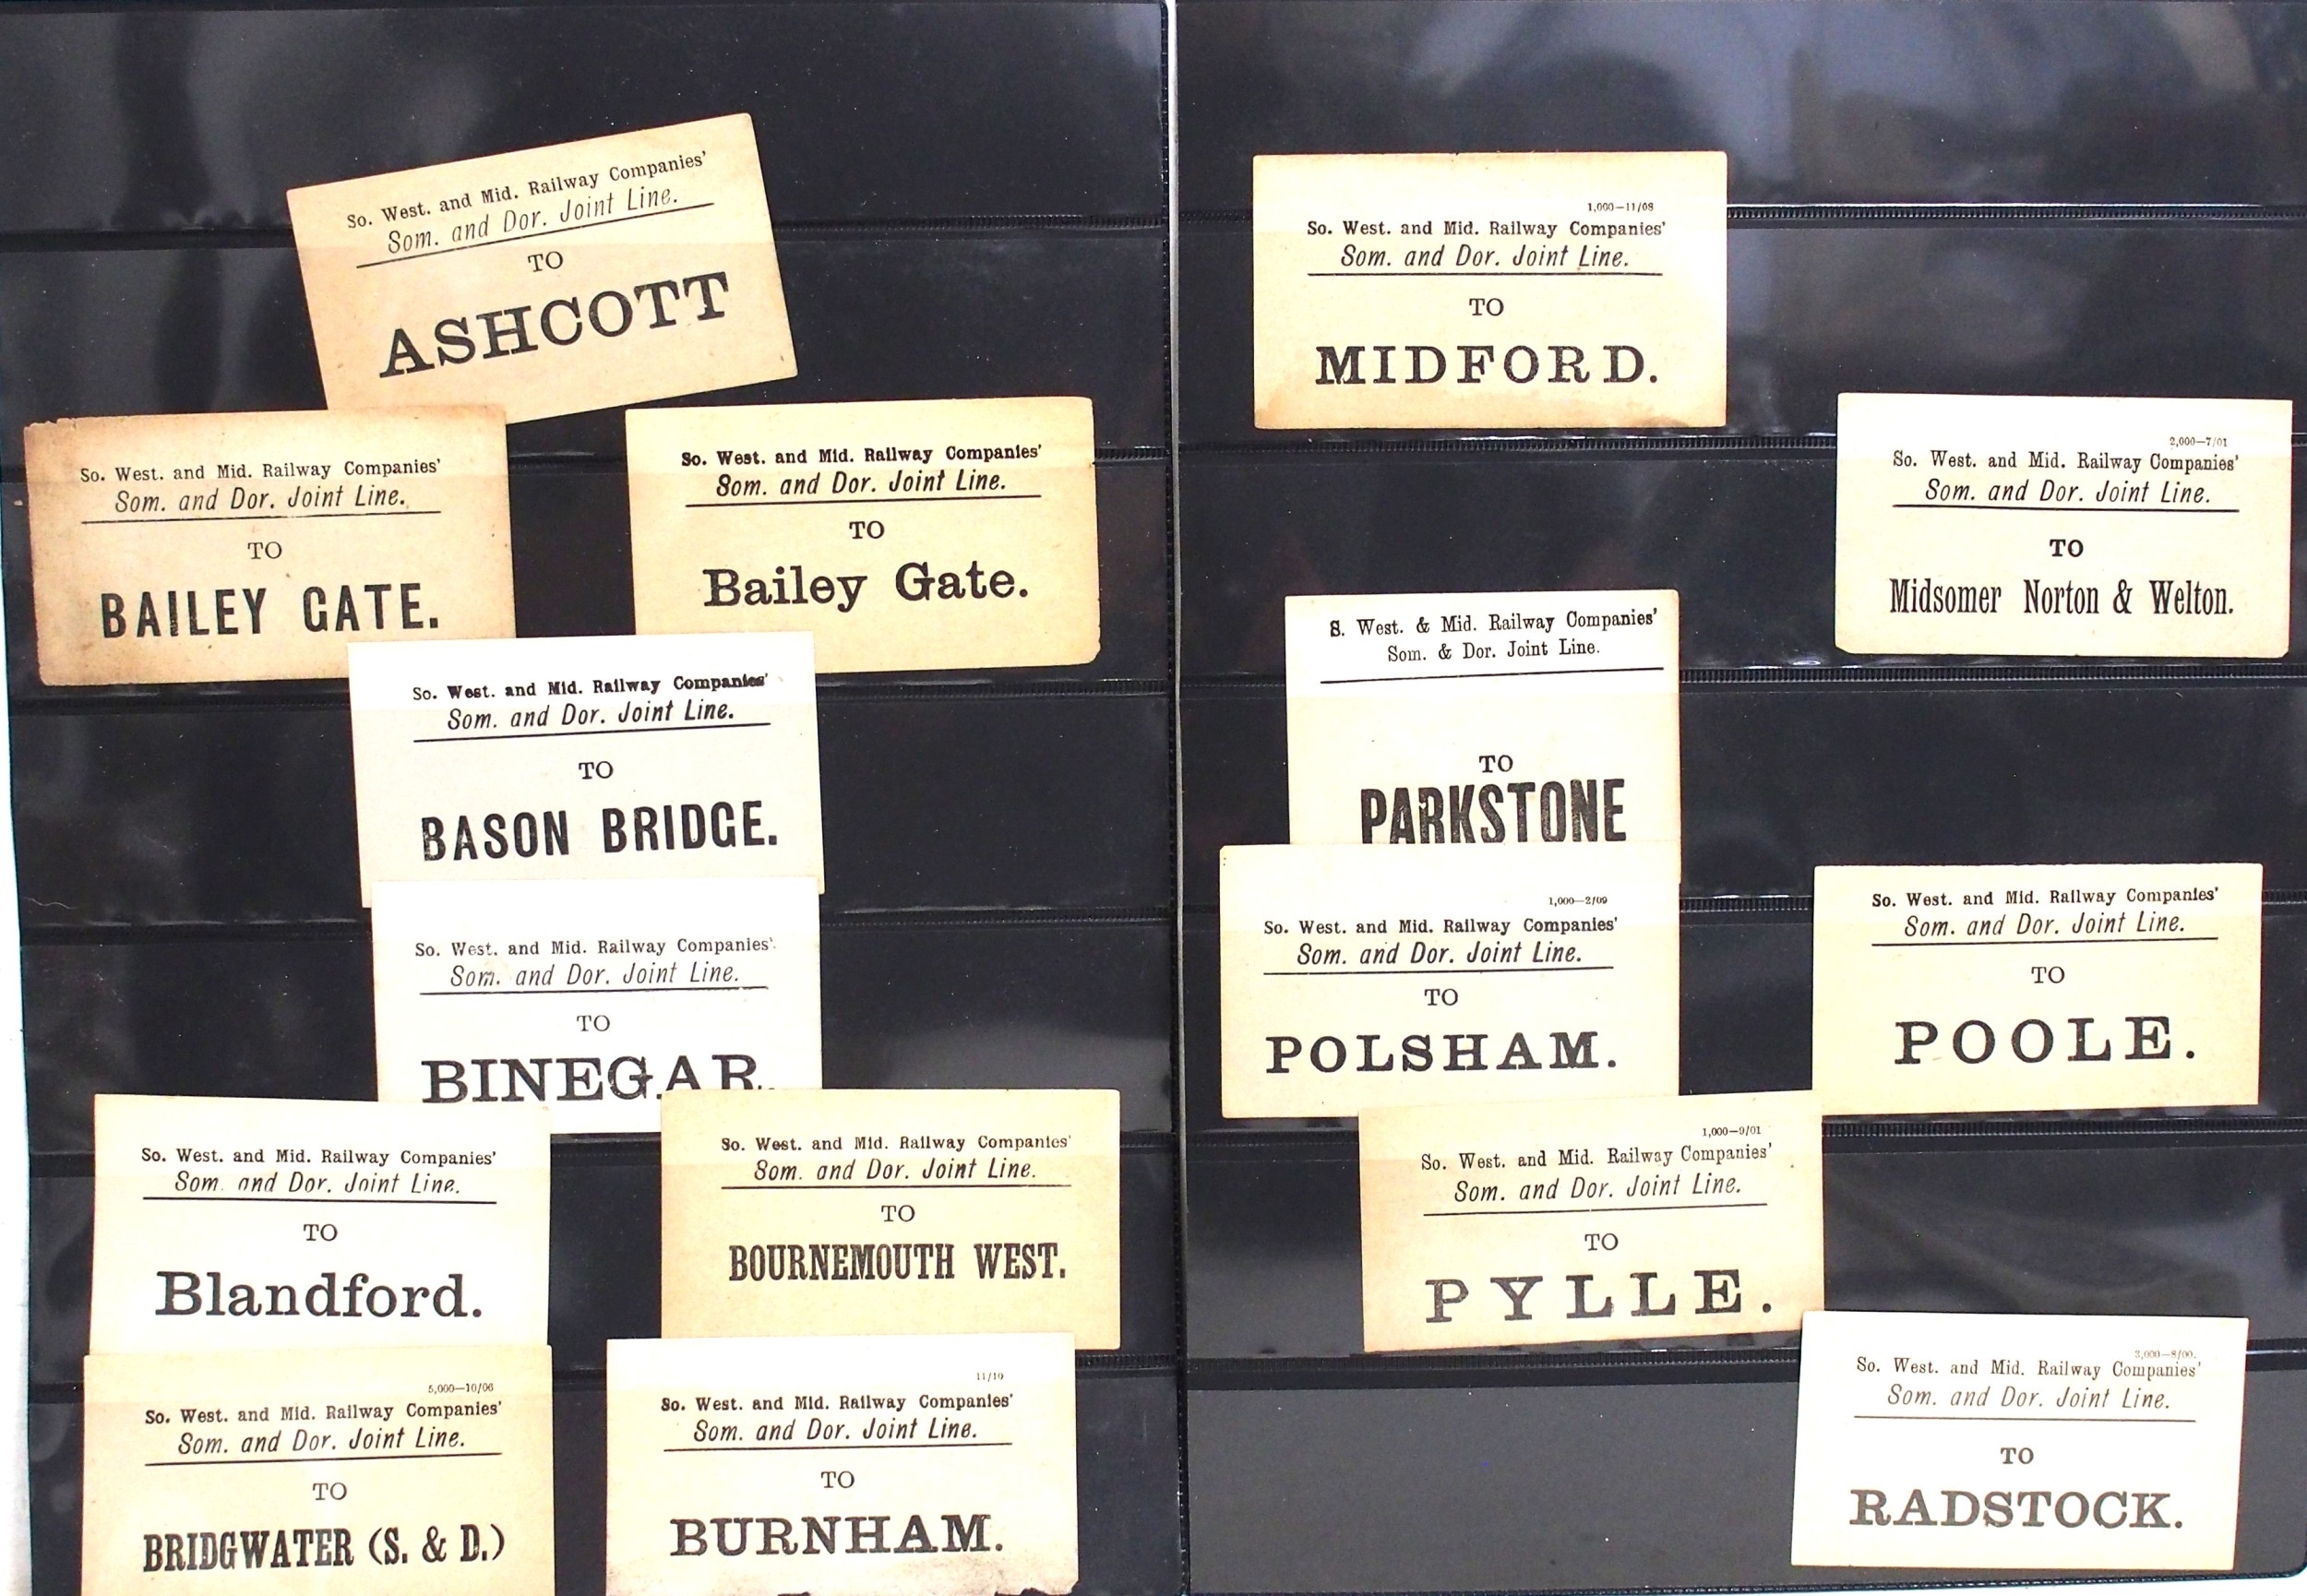 So. West. and Mid. Railway Companies'
Som. and Dor. Joint Line.
TO
ASHCOTT
So. West. and Mid. Railway Companies'
Som. and Dor. Joint Line.
TO
BAILEY GATE.
So. West. and Mid. Railway Companies'
Som. and Dor. Joint Line.
TO
Bailey Gate.
So. West. and Mid. Railway Companies'
Som. and Dor. Joint Line.
TO
BASON BRIDGE.
So. West. and Mid. Railway Companies'
Som. and Dor. Joint Line.
TO
BINEGAR.
So. West. and Mid. Railway Companies'
Som. and Dor. Joint Line.
TO
Blandford.
So. West. and Mid. Railway Companies'
Som. and Dor. Joint Line.
TO
BOURNEMOUTH WEST.
5,000—10/06
So. West. and Mid. Railway Companies'
Som. and Dor. Joint Line.
TO
BRIDGWATER (S. & D.)
11/10
So. West. and Mid. Railway Companies'
Som. and Dor. Joint Line.
TO
BURNHAM.
1,000—11/08
So. West. and Mid. Railway Companies'
Som. and Dor. Joint Line.
TO
MIDFORD.
2,000—7/01
So. West. and Mid. Railway Companies'
Som. and Dor. Joint Line.
TO
Midsomer Norton & Welton.
S. West. & Mid. Railway Companies'
Som. & Dor. Joint Line.
TO
PARKSTONE
1,000—2/09
So. West. and Mid. Railway Companies'
Som. and Dor. Joint Line.
TO
POLSHAM.
So. West. and Mid. Railway Companies'
Som. and Dor. Joint Line.
TO
POOLE.
1,000—9/01
So. West. and Mid. Railway Companies'
Som. and Dor. Joint Line.
TO
PYLLE.
3,000—8/00.
So. West. and Mid. Railway Companies'
Som. and Dor. Joint Line.
TO
RADSTOCK.